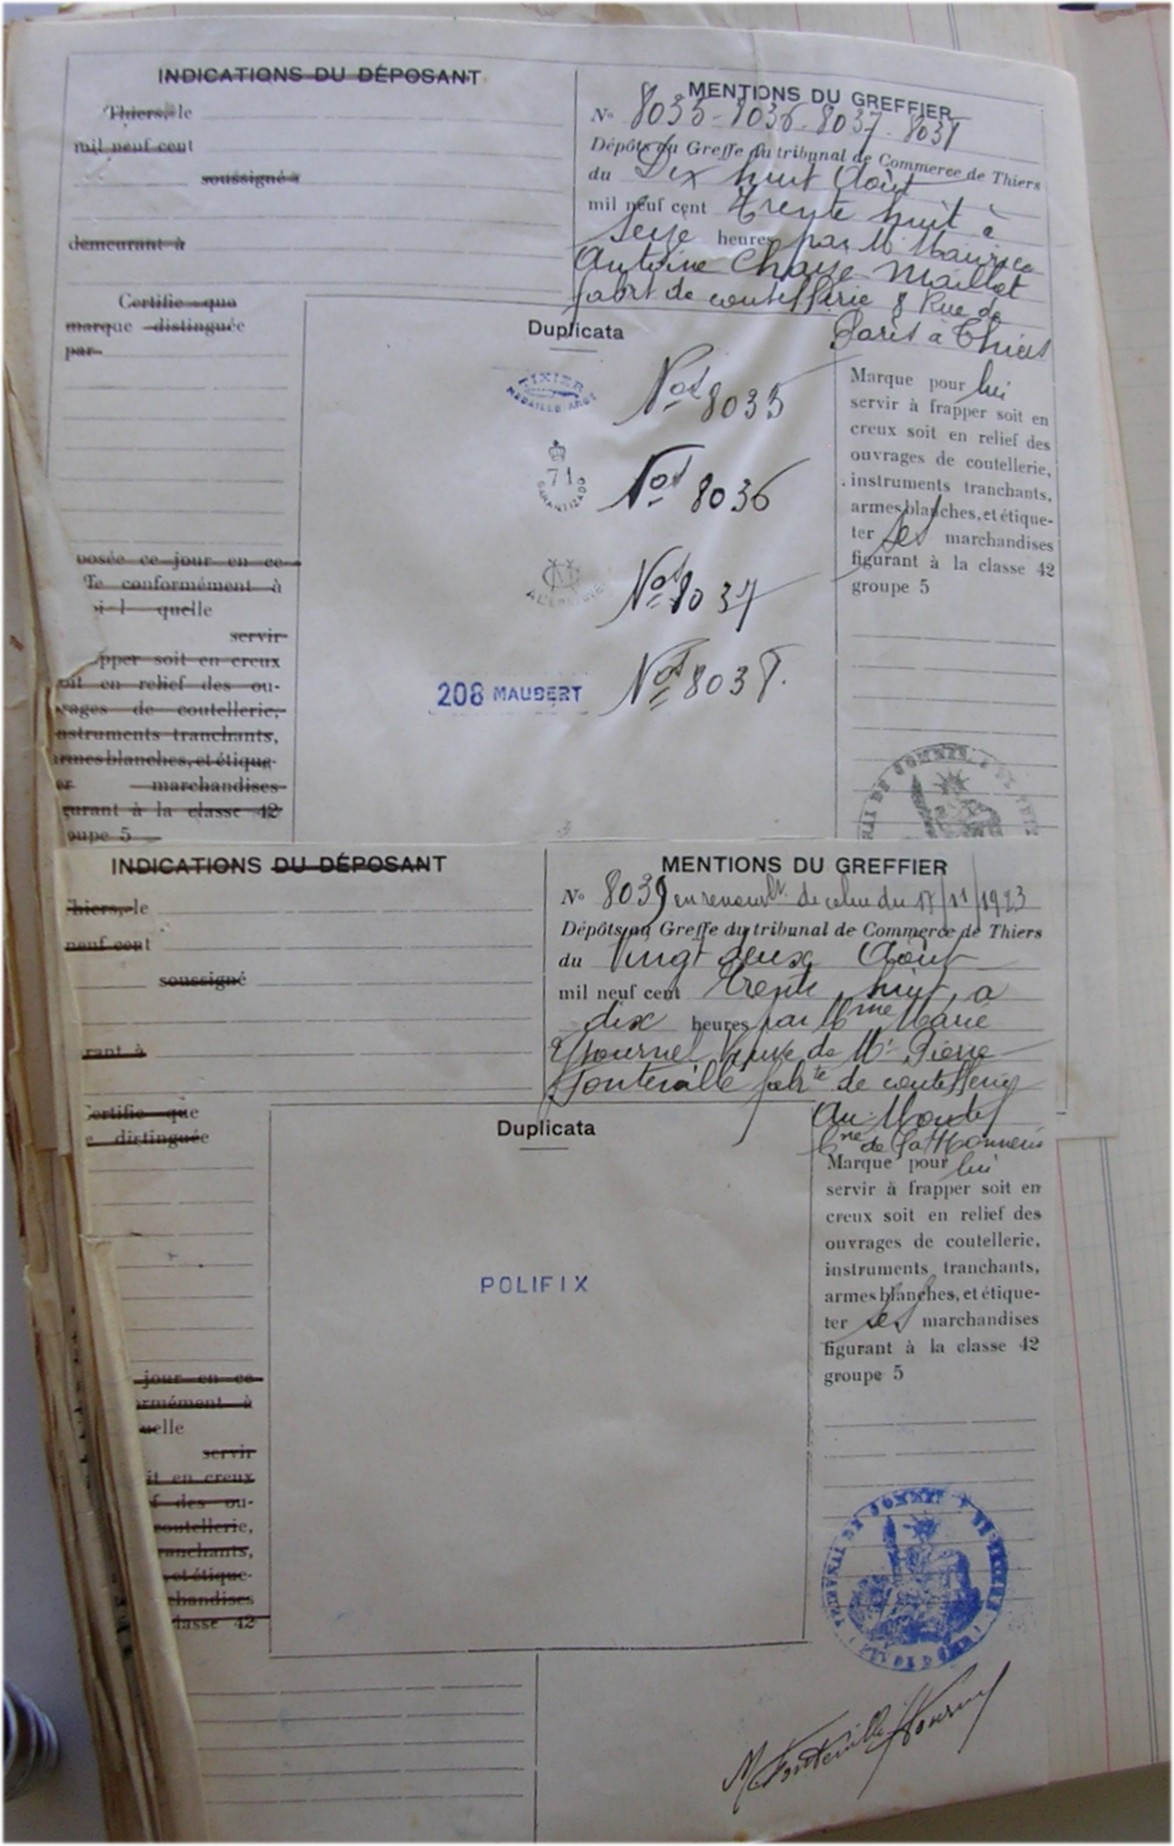 INDICATIONS DU DÉPOSANT
Thiers, le
mil neuf cent
soussigné
demeurant à
Certifie que
marque distinguée
par
posée ce jour en ce
fe conformément à
quelle
servir
pper soit en creux
oit en relief des ou-
rages de coutellerie,
nstruments tranchants,
armes blanches, et étique-
er marchandises
gurant à la classe 42
oupe 5
MENTIONS DU GREFFIER
No 8035 - 8036 - 8037 - 8038
Dépôts au Greffe du tribunal de Commerce de Thiers
du Dix huit Août
mil neuf cent trente huit à
seize heures par M. Maurice
Antoine Chaze Maillot
fabrt de coutellerie 8 Rue de
Paris à Thiers
Duplicata
TIXIER
MEDAILLE ARGT
Nos 8035
71
GARANTIZADO
Nos 8036
Nos 8037
208 MAUBERT
Nos 8038.
Marque pour lui
servir à frapper soit en
creux soit en relief des
ouvrages de coutellerie,
instruments tranchants,
armes blanches, et étique-
ter ses marchandises
figurant à la classe 42
groupe 5
INDICATIONS DU DÉPOSANT
Thiers, le
neuf cent
soussigné
rant à
Certifie que
e distinguée
jour en ce
ormément à
uelle
servir
it en creux
f des ou-
coutellerie,
ranchants,
et étique-
chandises
lasse 42
MENTIONS DU GREFFIER
No 8039 en renouvelt de celui du 17/11/1923
Dépôts au Greffe du tribunal de Commerce de Thiers
du Vingt deux Août
mil neuf cent trente huit à
dix heures par Mme Marie
Tournel Veuve de Mr Pierre
Fonteville fabrte de coutellerie
Au Moutel
Cne de La Monnerie
Duplicata
POLIFIX
Marque pour lui
servir à frapper soit en
creux soit en relief des
ouvrages de coutellerie,
instruments tranchants,
armes blanches, et étique-
ter ses marchandises
figurant à la classe 42
groupe 5